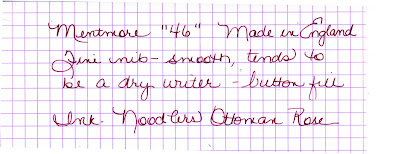 Mentmore "46" Made in England
Fine nib - smooth, tends to
be a dry writer - button fill
Ink - Noodlers Ottoman Rose